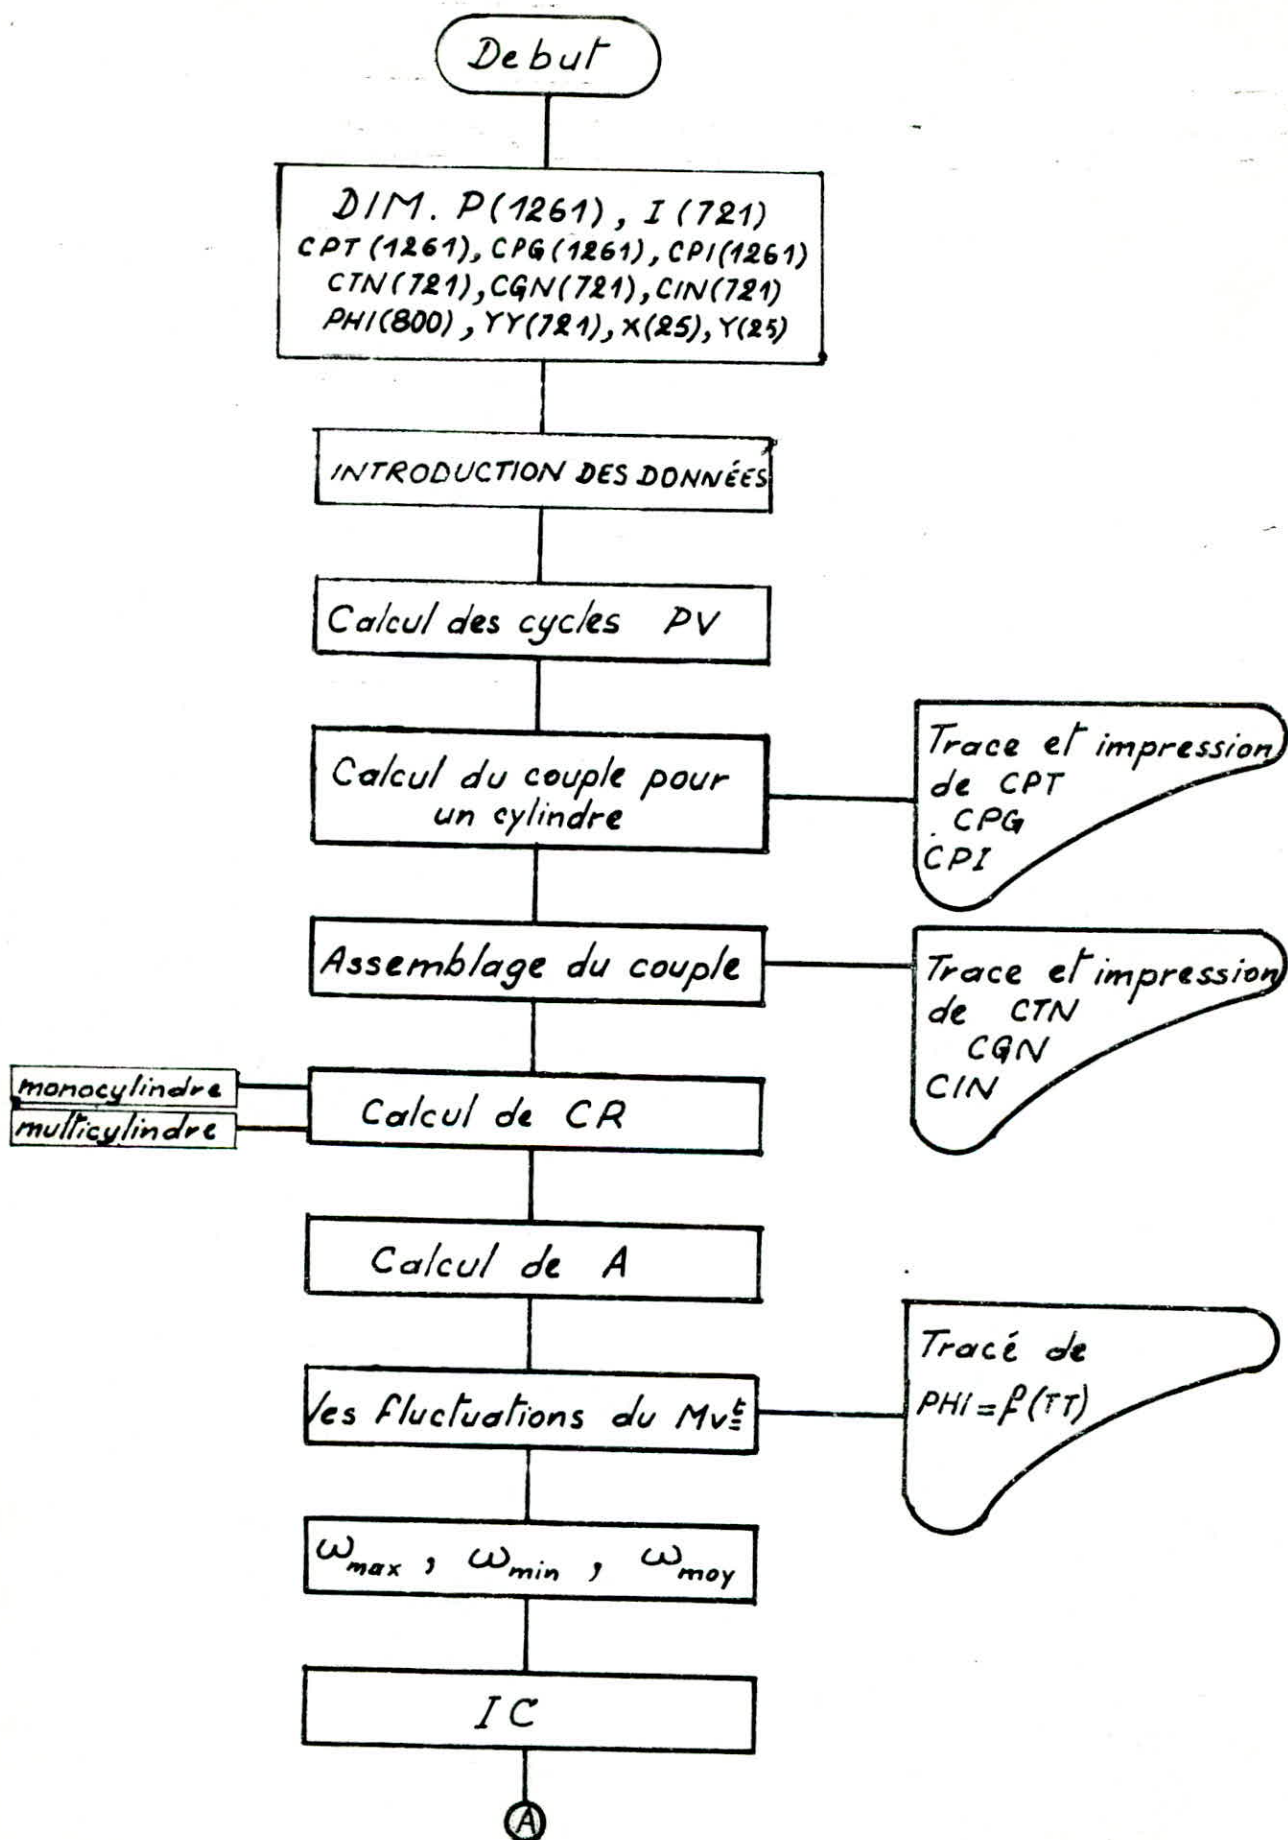 Debut
DIM. P(1261), I(721)
CPT(1261), CPG(1261), CPI(1261)
CTN(721), CGN(721), CIN(721)
PHI(800), YY(721), X(25), Y(25)
INTRODUCTION DES DONNÉES
Calcul des cycles PV
Calcul du couple pour
un cylindre
Trace et impression
de CPT
CPG
CPI
Assemblage du couple
Trace et impression
de CTN
CGN
CIN
monocylindre
multicylindre
Calcul de CR
Calcul de A
les fluctuations du Mvt
Tracé de
PHI = f(TT)
ωmax, ωmin, ωmoy
IC
A